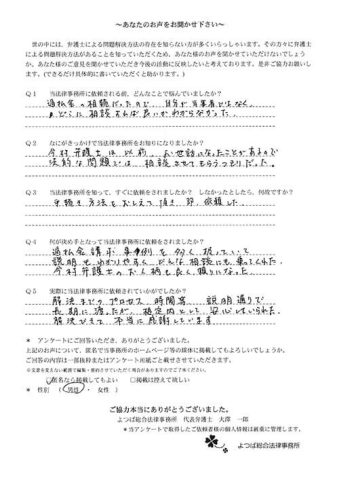 ～あなたのお声をお聞かせ下さい～
世の中には、弁護士による問題解決方法の存在を知らない方が多くいらっしゃいます。その方々に弁護士
による問題解決方法があることを知っていただくため、あなた様のお声を聞かせていただけないでしょう
か。あなた様のご意見を聞かせていただき今後の活動に反映したいと考えております。是非ご協力お願いし
ます。(できるだけ具体的に書いていただくと助かります。)
Q1 当法律事務所に依頼される前、どんなことで悩んでいましたか？
過払金の相談だったので 自分が当事者ではなく、
どこに相談すれば良いかわからなかった。
Q2 なにがきっかけで当法律事務所をお知りになりましたか？
今村弁護士は以前、お世話になったことがあるので
法的な問題では相談させてもらうつもりだった。
Q3 当法律事務所を知って、すぐに依頼をされましたか？ しなかったとしたら、何故ですか？
手続き方法をおしえて頂き 即、依頼した
Q4 何が決め手となって当法律事務所に依頼をされましたか？
過払金請求事例を多く扱っていて
説明もわかりやすく、どんな相談にも乗ってくれた。
今村弁護士のお人柄も良く、頼りになった
Q5 実際に当法律事務所に依頼されていかがでしたか？
解決までのプロセス、時間等 説明通りで
長期に渡ったが想定内とした 安心していられた。
解決できて本当に感謝しています
* アンケートにご回答いただき、ありがとうございました。
上記のお声について、匿名で当事務所のホームページ等の媒体に掲載してもよろしいでしょうか。
ご回答の内容は一部抜粋またはアンケート用紙ごと載せさせていただきます。
※文意を変えない範囲で編集・要約させていただく場合がありますのでご了承ください。
☑匿名なら掲載してもよい □掲載は控えて欲しい
* 性別 （ 男性 ・ 女性 ）
ご協力本当にありがとうございました。
よつば総合法律事務所 代表弁護士 大澤 一郎
*当アンケートで取得したご依頼者様の個人情報は厳重に管理します。
よつば総合法律事務所